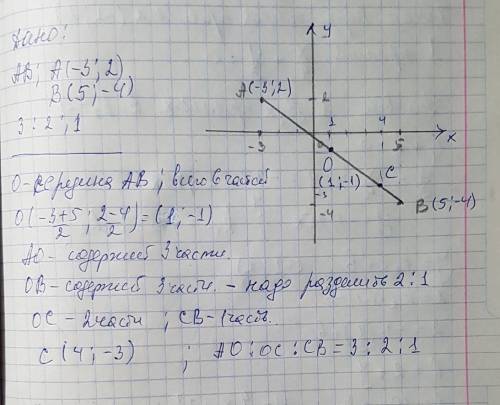 Дано:
АВ; А(-3; 2)
В(5; -4)
3:2:1
О-середина АВ; всего 6 частей
О(-3+5/2; 2-4/2)=(1; -1)
АО- содержит 3 части.
ОВ-содержит 3 части. - надо разделить 2:1
ОС-2 части; СВ-1 часть.
С(4; -3) ; АО:ОС:СВ=3:2:1
у
А(-3; 2)
2
1
4
-3
0
5
х
О
(1; -1)
С
-3
-4
В(5; -4)